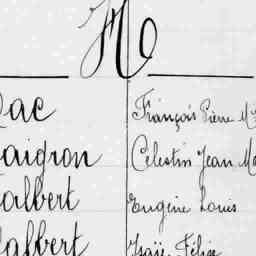 H
ac François Pierre M
aigron Célestin Jean Ma
albert Eugène Louis
albert Isaïe Félix